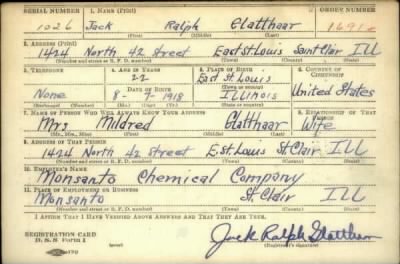 SERIAL NUMBER 1. NAME (Print) ORDER NUMBER
1026 Jack Ralph Glatthaar 1691
(First) (Middle) (Last)
2. ADDRESS (Print)
1424 North 42 Street East St. Louis Saint Clair Ill
(Number and street or R. F. D. number) (Town) (County) (State)
3. TELEPHONE 4. AGE IN YEARS 5. PLACE OF BIRTH 6. COUNTRY OF CITIZENSHIP
22 East St. Louis
(Town or county)
None DATE OF BIRTH ILLINOIS United States
8-7-1918
(Exchange) (Number) (Mo.) (Day) (Yr.) (State or country)
7. NAME OF PERSON WHO WILL ALWAYS KNOW YOUR ADDRESS 8. RELATIONSHIP OF THAT PERSON
Mrs Mildred Glatthaar Wife
(Mr., Mrs., Miss) (First) (Middle) (Last)
9. ADDRESS OF THAT PERSON
1424 North 42 Street E. St. Louis St Clair Ill
(Number and street or R. F. D. number) (Town) (County) (State)
10. EMPLOYER'S NAME
Monsanto Chemical Company
11. PLACE OF EMPLOYMENT OR BUSINESS
Monsanto St. Clair Ill
(Number and street or R. F. D. number) (Town) (County) (State)
I AFFIRM THAT I HAVE VERIFIED ABOVE ANSWERS AND THAT THEY ARE TRUE.
REGISTRATION CARD
D. S. S. Form 1 Jack Ralph Glatthaar
(Registrant's signature)